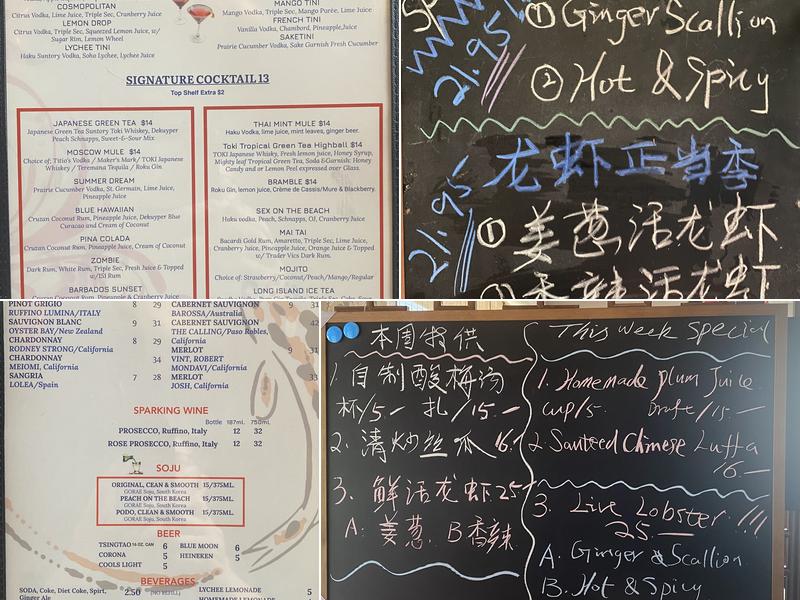 COSMOPOLITAN
Citrus Vodka, Lime Juice, Triple Sec, Cranberry Juice
LEMON DROP
Citrus Vodka, Triple Sec, Squeezed Lemon Juice, w/
Sugar Rim, Lemon Wheel
LYCHEE TINI
Haku Suntory Vodka, Soho Lychee, Lychee Juice
MANGO TINI
Mango Vodka, Triple Sec, Mango Purée, Lime Juice
FRENCH TINI
Vanilla Vodka, Chambord, Pineapple Juice
SAKETINI
Prairie Cucumber Vodka, Sake Garnish Fresh Cucumber
SIGNATURE COCKTAIL 13
Top Shelf Extra $2
JAPANESE GREEN TEA $14
Japanese Green Tea Suntory Toki Whiskey, Dekuyper
Peach Schnapps, Sweet-&-Sour Mix
MOSCOW MULE $14
Choice of: Titio's Vodka / Maker's Mark/ TOKI Japanese
Whiskey / Teremana Tequila / Roku Gin
SUMMER DREAM
Prairie Cucumber Vodka, St. Germain, Lime Juice,
Pineapple Juice
BLUE HAWAIIAN
Cruzan Coconut Rum, Pineapple Juice, Dekuyper Blue
Curacao and Cream of Coconut
PINA COLADA
Cruzan Coconut Rum, Pineapple Juice, Cream of Coconut
ZOMBIE
Dark Rum, White Rum, Triple Sec, Fresh Juice & Topped
w/151 Rum
BARBADOS SUNSET
Cruzan Coconut Rum, Pineapple & Cranberry Juice
THAI MINT MULE $14
Haku Vodka, lime juice, mint leaves, ginger beer.
Toki Tropical Green Tea Highball $14
TOKI Japanese Whisky, Fresh lemon juice, Honey Syrup,
Mighty leaf Tropical Green Tea, Soda &Garnish: Honey
Candy and or Lemon Peel expressed over Glass.
BRAMBLE $14
Roku Gin, lemon juice, Crème de Cassis/Mure & Blackberry.
SEX ON THE BEACH
Haku vodka, Peach, Schnapps, OJ, Cranberry Juice
MAI TAI
Bacardi Gold Rum, Amaretto, Triple Sec, Lime Juice,
Cranberry Juice, Pineapple Juice, Orange Juice & Topped
w/ Trader Vics Dark Rum.
MOJITO
Choice of: Strawberry/Coconut/Peach/Mango/Regular
LONG ISLAND ICE TEA
21.95
① Ginger Scallion
② Hot & Spicy
龙虾正当季
21.95
① 姜葱活龙虾
② 香辣活龙虾
PINOT GRIGIO 8 29
RUFFINO LUMINA/ITALY
SAUVIGNON BLANC 9 31
OYSTER BAY/New Zealand
CHARDONNAY 8 29
RODNEY STRONG/California
CHARDONNAY 34
MEIOMI, California
SANGRIA 7 28
LOLEA/Spain
CABERNET SAUVIGNON 9 31
BAROSSA/Australia
CABERNET SAUVIGNON 42
THE CALLING/Paso Robles,
California
MERLOT 9 31
VINT, ROBERT
MONDAVI/California
MERLOT 33
JOSH, California
SPARKING WINE
Bottle 187ml. 750ml.
PROSECCO, Ruffino, Italy 12 32
ROSE PROSECCO, Ruffino, Italy 12 32
SOJU
ORIGINAL, CEAN & SMOOTH 15/375ML.
GORAE Soju, South Korea
PEACH ON THE BEACH 15/375ML.
GORAE Soju, South Korea
PODO, CLEAN & SMOOTH 15/375ML.
GORAE Soju, South Korea
BEER
TSINGTAO 16 OZ. CAN 6
CORONA 5
COOLS LIGHT 5
BLUE MOON 6
HEINEKEN 5
BEVERAGES
SODA, Coke, Diet Coke, Spirt, 2.50 (NO REFILL)
Ginger Ale
LYCHEE LEMONADE 5
HOMEMADE LEMONADE
本周特供
1. 自制酸梅汤
杯/5- 扎/15.-
2. 清炒丝瓜 16.-
3. 鲜活龙虾 25-
A: 姜葱. B香辣
This Week Special
1. Homemade plum Juice
cup/5. Draft/15.-
2 Sauteed Chinese Luffa
16.-
3. Live Lobster !!!
25.-
A. Ginger & Scallion
B. Hot & Spicy